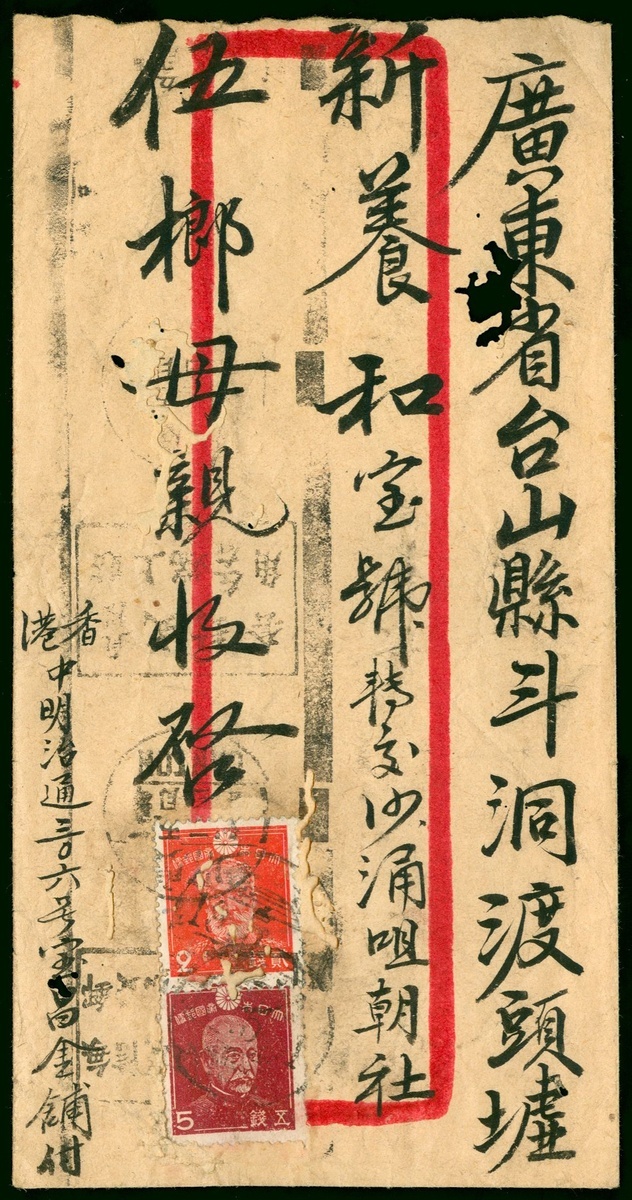 廣東省台山縣斗洞渡頭墟
新養和宝號轉交沙涌咀朝社
伍榔母親收啓
香港中明治通
六号
金鋪付
大日本帝國郵便
貳錢
2
大日本帝國郵便
五錢
5